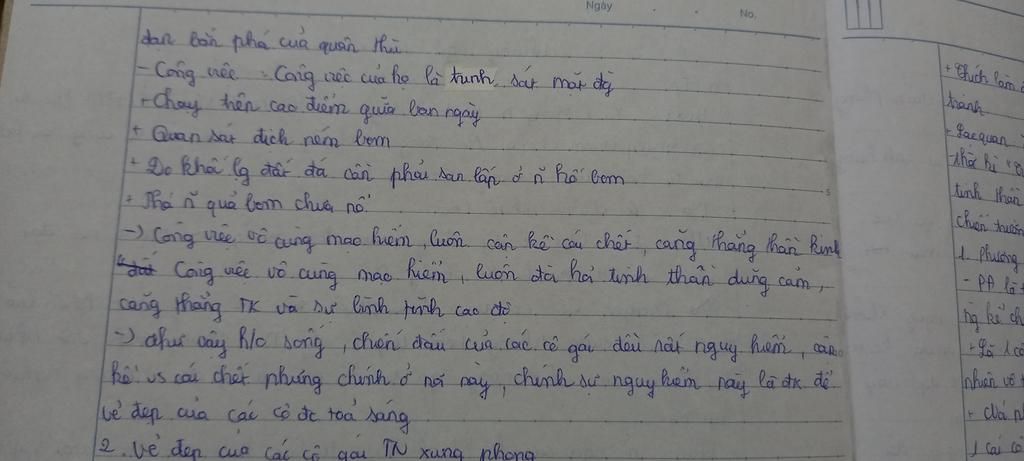 Ngày
No.
đạn bắn phá của quân thù
- Công việc : Công việc của họ là trinh sát mặt đg
+ Chạy trên cao điểm giữa ban ngày
+ Quan sát địch ném bom
+ Đo khối lg đất đá cần phải san lấp ở n~ hố bom
+ Phá n~ quả bom chưa nổ.
-> Công việc vô cùng mạo hiểm, luôn cận kề cái chết, căng thẳng thần kinh
Công việc vô cùng mạo hiểm, luôn đòi hỏi tinh thần dũng cảm,
căng thẳng TK và sự bình tĩnh cao độ
-> Như vậy h/c sống, chiến đấu của các cô gái đều rất nguy hiểm, cận
kề vs cái chết nhưng chính ở nơi này, chính sự nguy hiểm này là đk để
vẻ đẹp của các cô đc toả sáng
2. Vẻ đẹp của các cô gái TN xung phong
+ Thích làm
+ Lạc quan
tinh thần
chiến trường
1. Phương
nhiên vô t
1 cái cô